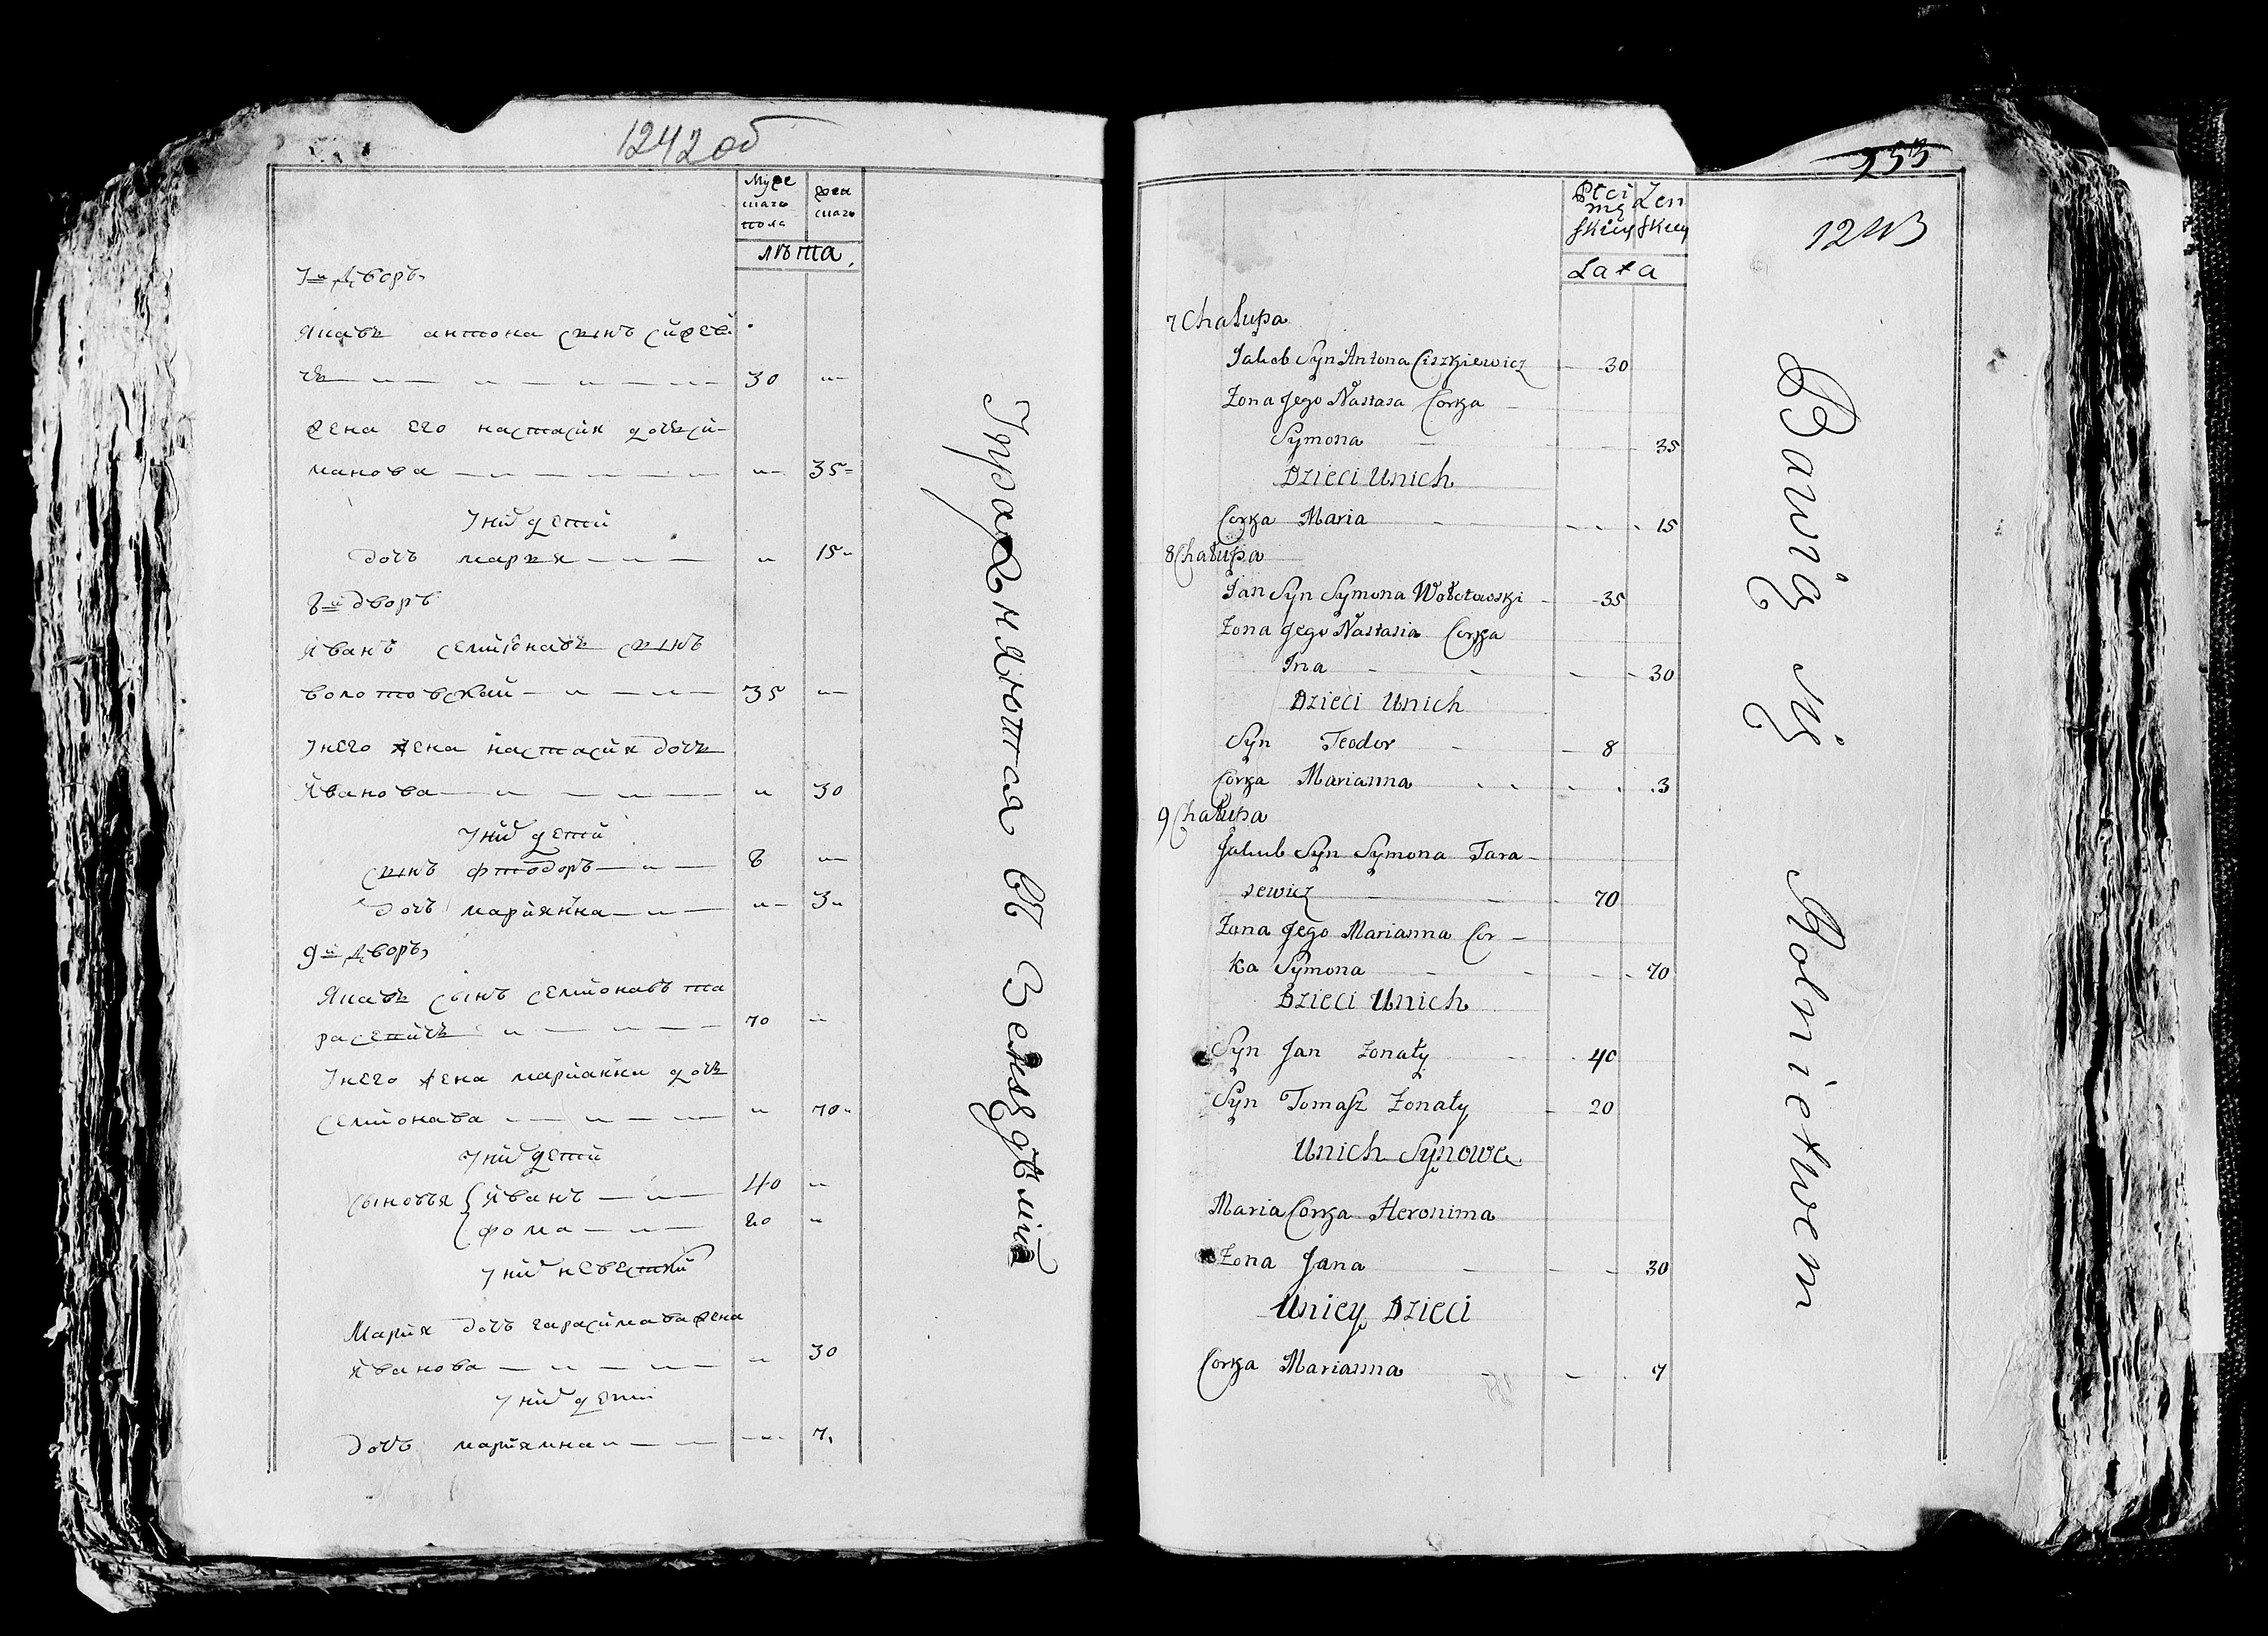 1242 об
Муже
скаго
пола
жен
скаго
лѣта
7й Дворъ
Яковъ антона сынъ
30
жена его настасия дочь си-
манова 35
У них дети
дочь мария 15
8й дворъ
Иванъ семионавъ сынъ
волотовский 35
У него жена настасия дочь
Иванова 30
У них дети
сынъ фтодоръ 8
дочь мариянна 3
9й Дворъ
Яковъ сынъ семионавъ та
расевичъ 70
У него жена марианна дочь
семионава 70
У них дети
сыновья Иванъ 40
фома 20
У них невестки
Мария дочь гарасимава жена
Иванова 30
У них дети
дочь мариямна 7
Упражняются въ Земледѣлии
253
1243
Płci
mę
skiey
Zen
skiey
Lata
7 Chałupa
Jakob Syn Antona Ciszkiewicz 30
Zona Jego Nastasa Corka
Symona 35
Dzieci Unich
Corka Maria 15
8 Chałupa
Jan Syn Symona Wołotowski 35
Zona Jego Nastasia Corka
Ina 30
Dzieci Unich
Syn Teodor 8
Corka Marianna 3
9 Chałupa
Jakub Syn Symona Tara-
sewicz 70
Zona Jego Marianna Cor-
ka Symona 70
Dzieci Unich
Syn Jan Zonaty 40
Syn Tomasz Zonaty 20
Unich Synowe
Maria Corka Heronima
Zona Jana 30
Uniey Dzieci
Corka Marianna 7
Bawią się Rolnictwem